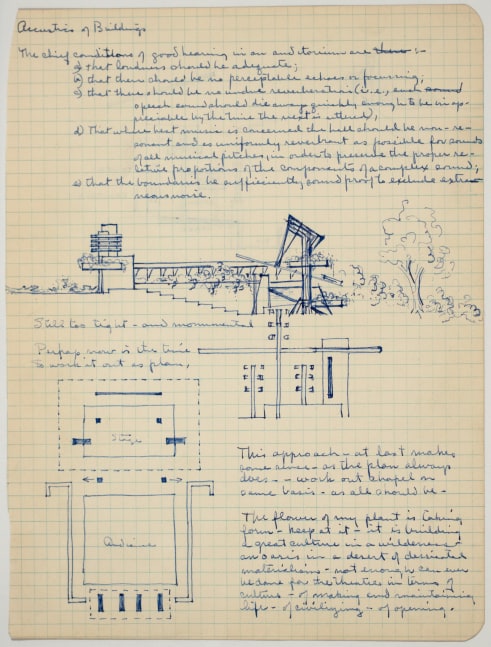 Acoustics of Buildings
The chief conditions of good hearing in an auditorium are :-
a) that loudness should be adequate;
b) that there should be no perceptable echoes or focusing;
c) that there should be no undue reverberation (i.e., each
speech sound should die away quickly enough to be inap-
preciable by the time the next is uttered);
d) That where best music is concerned the hall should be non-re-
sonant and as uniformly reverbrant as possible for sounds
of all musical pitches, in order to preserve the proper re-
lative proportions of the components of a complex sound;
e) that the boundaries be sufficiently sound proof to exclude extra-
neous noise.
Still too tight - and monumental
Perhaps now is the time
to work it out as plan,
Stage
Audience
This approach - at last makes
some sense - as the plan always
does - - work out chapel on
same basis - as all should be -
The flower of my plant is taking
form - keep at it - it is building
a great culture in a wilderness -
an oasis in a desert of
materialism - not enough can ever
be done for theatres in terms of
culture - of making and maintaining
life - of civilizing - of opening.